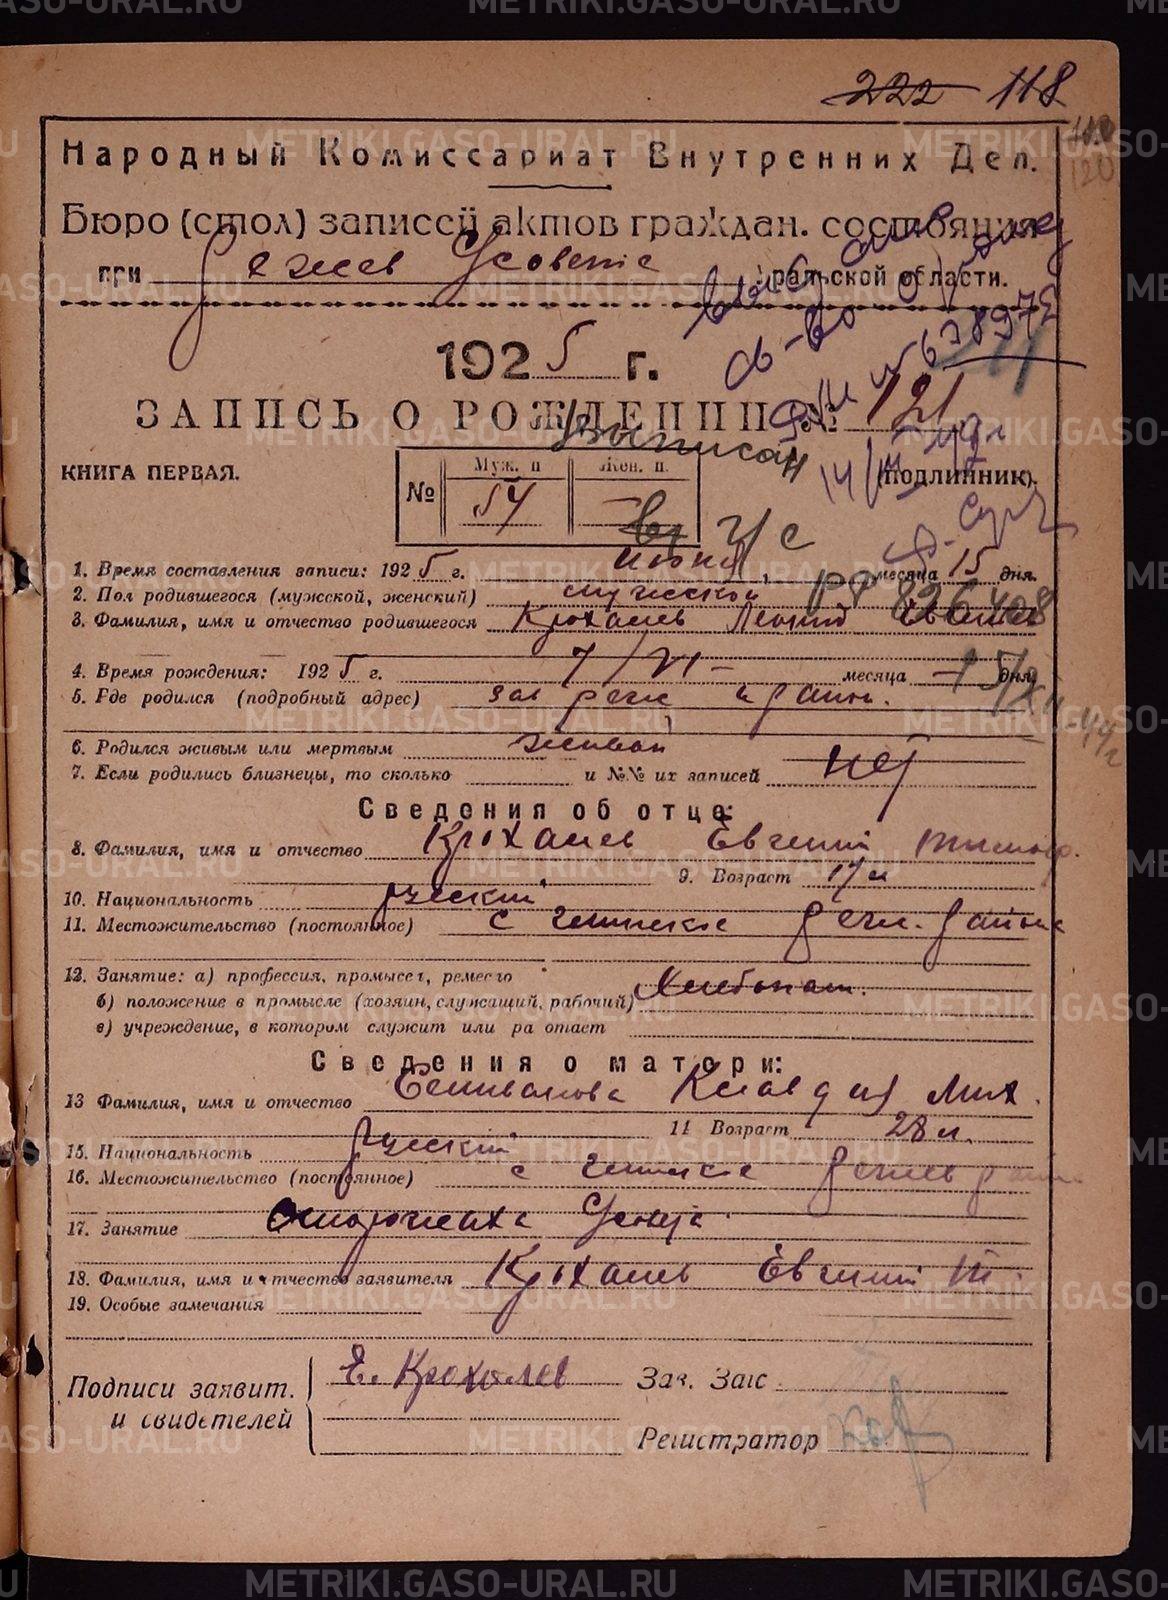 222 118
110
120
Народный Комиссариат Внутренних Дел.
Бюро (стол) записей актов граждан. состояния
при Режев Усовете Уральской области.
1925 г.
ЗАПИСЬ О РОЖДЕНИИ № 121
678973
Выписан
14/III
КНИГА ПЕРВАЯ. № Муж. п 54 Жен. п. — (подлинник).
1. Время составления записи: 1925 г. июня месяца 15 дня.
2. Пол родившегося (мужской, женский) мужской
РФ 826408
3. Фамилия, имя и отчество родившегося Крохалев Леонид Евгенев
4. Время рождения: 1925 г. 7/VI — месяца — дня.
15/XII-44 г
5. Где родился (подробный адрес) зав реж район.
6. Родился живым или мертвым живой
7. Если родились близнецы, то сколько и №№ их записей нет
Сведения об отце:
8. Фамилия, имя и отчество Крохалев Евгений Тимоф.
9. Возраст 17 л
10. Национальность русский
11. Местожительство (постоянное) с режев. района
12. Занятие: а) профессия, промысел, ремесло Хлебопаш.
б) положение в промысле (хозяин, служащий, рабочий)
в) учреждение, в котором служит или ра отает
Сведения о матери:
13 Фамилия, имя и отчество Селиванова Клавдия Мих.
14 Возраст 28 л.
15. Национальность русский
16. Местожительство (постоянное) с режев рай
17. Занятие
18. Фамилия, имя и отчество заявителя Крохалев Евгений Т.
19. Особые замечания
Подписи заявит. и свидетелей Е. Крохалев Зав. Загс
Регистратор
METRIKI.GASO-URAL.RU